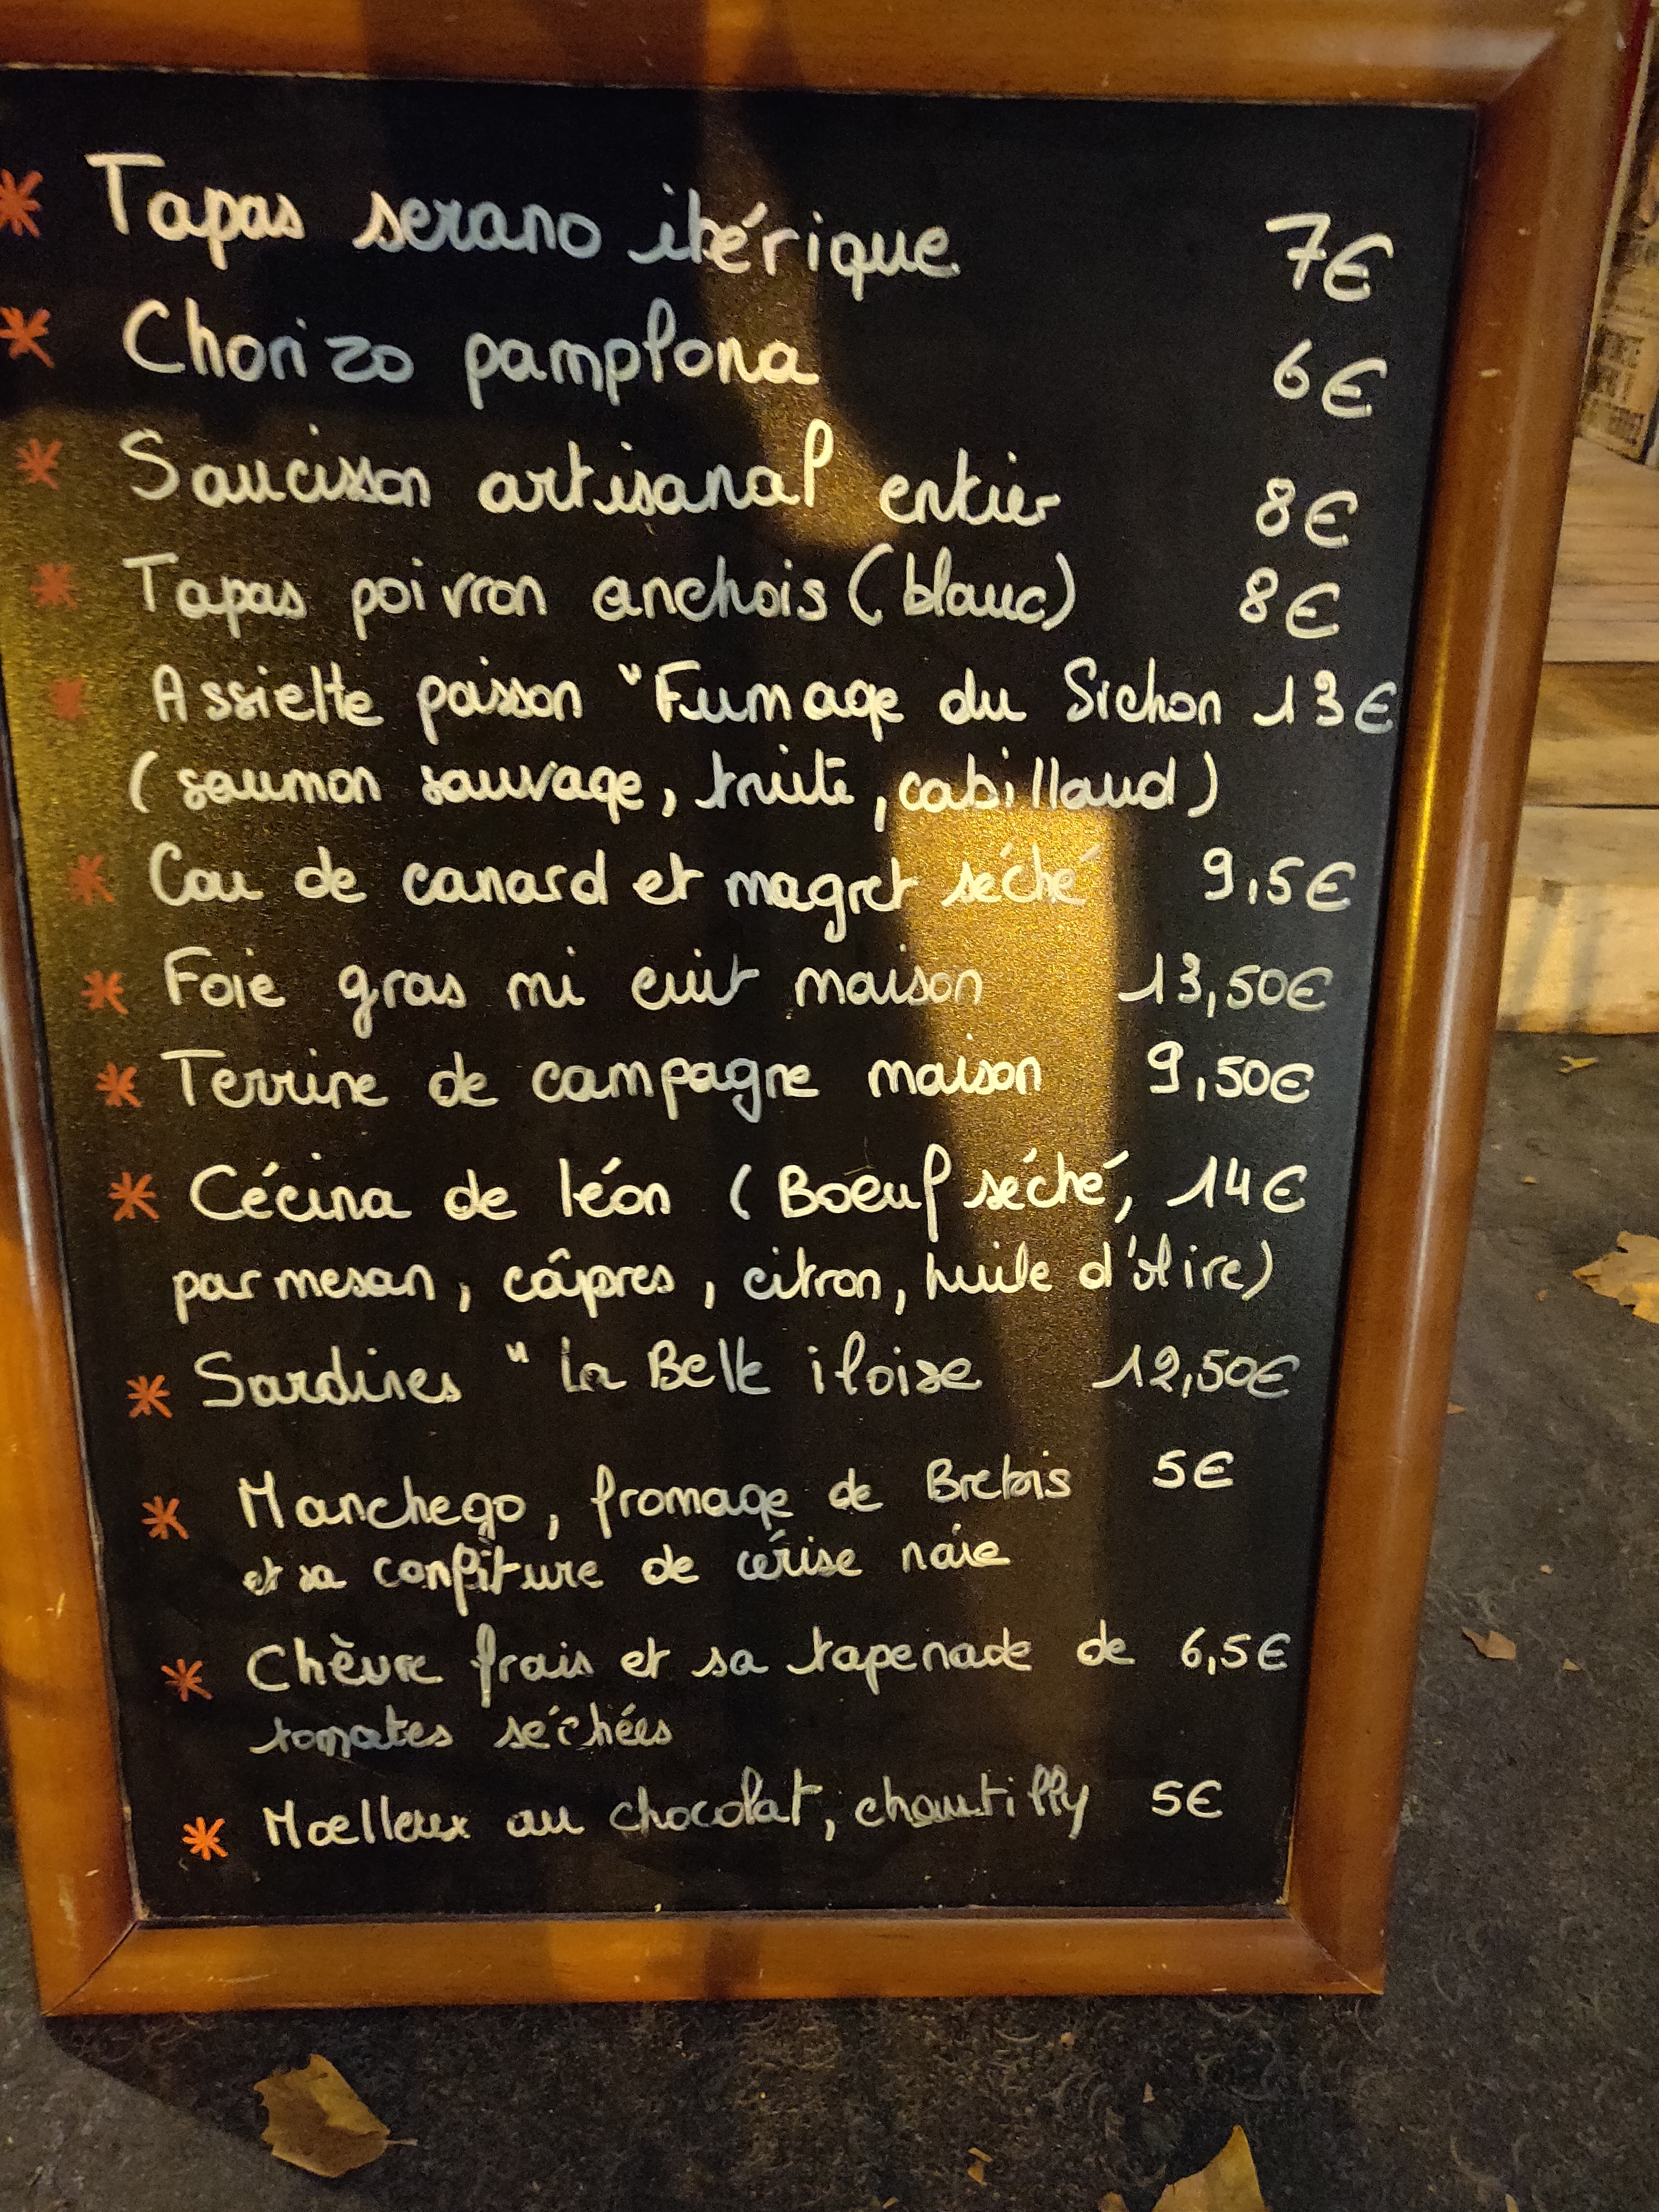 * Tapas serano ibérique 7€
* Chorizo pamplona 6€
* Saucisson artisanal entier 8€
* Tapas poivron anchois (blanc) 8€
* Assiette poisson "Fumage du Sichon 13€
(saumon sauvage, truite, cabillaud)
* Cou de canard et magret séché 9,5€
* Foie gras mi cuit maison 13,50€
* Terrine de campagne maison 9,50€
* Cécina de léon (Boeuf séché, 14€
parmesan, câpres, citron, huile d'olive)
* Sardines "La Belle iloise 12,50€
* Manchego, fromage de Brebis 5€
et sa confiture de cérise noire
* Chèvre frais et sa tapenade de 6,5€
tomates séchées
* Moelleux au chocolat, chantilly 5€